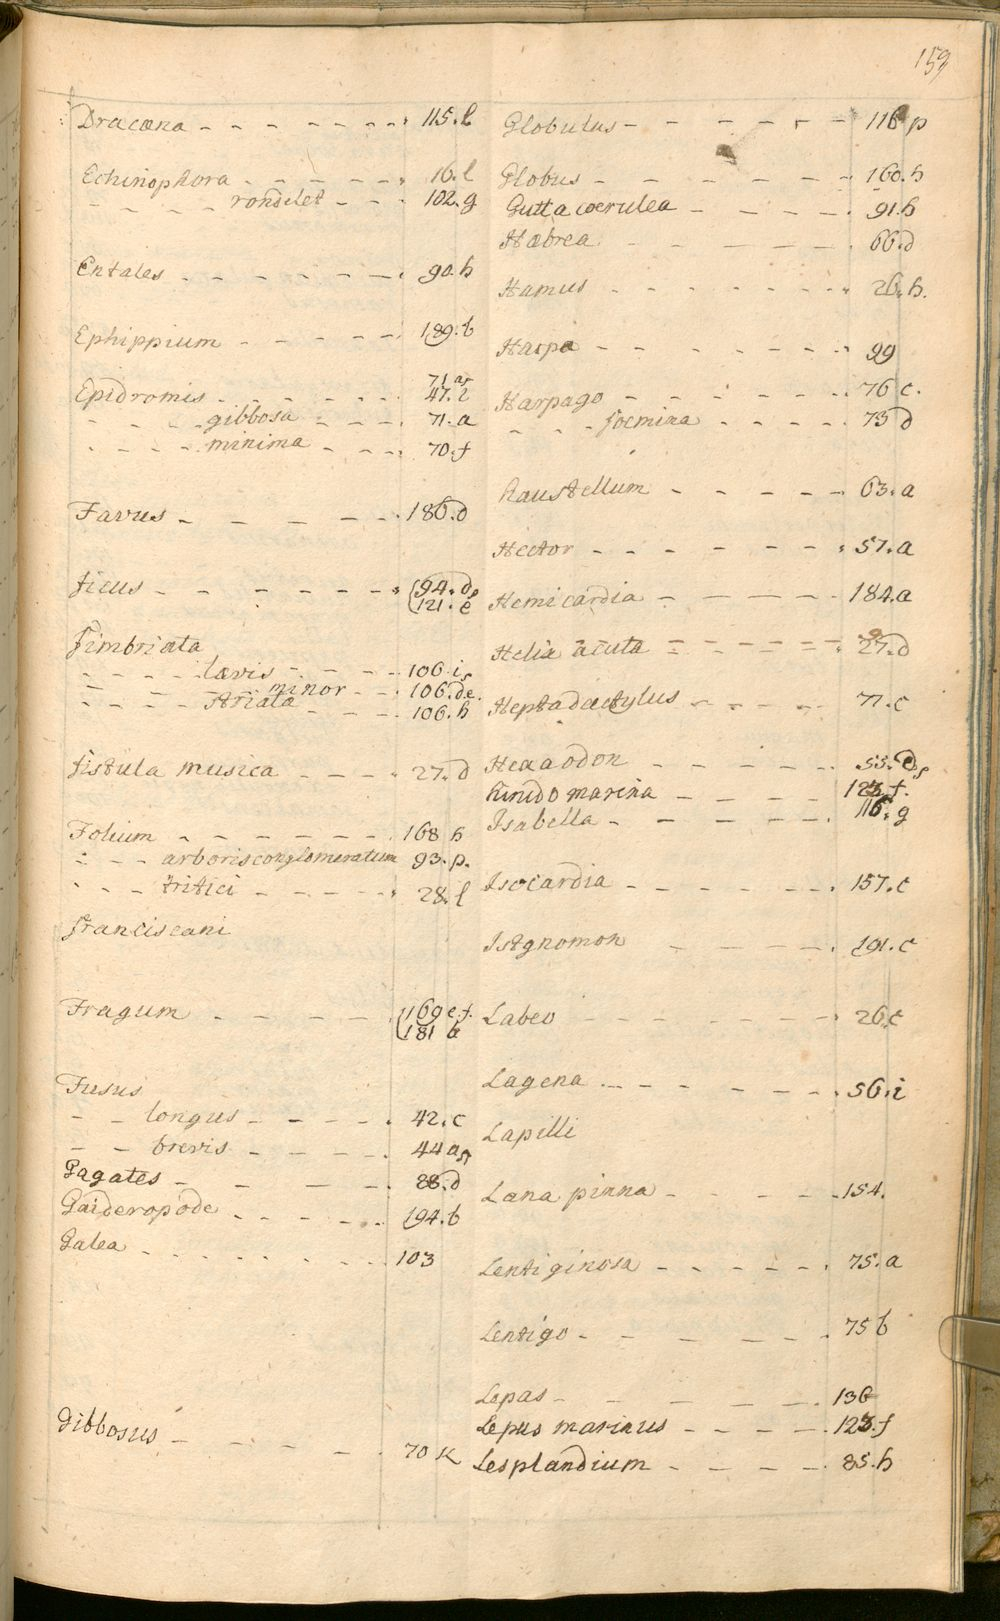 159
Dracæna - - - - - - - - 115. l
Echinophora - - - - - - 16. l
- - - - rondelet - - - 102. g
Entales - - - - - - - 90. h
Ephippium - - - - - 189. b
71 a
Epidromis - - - - - - 47. l
- - - - gibbosa - - - 71. a
- - - - minima - - - 70. f
Favus - - - - - - 186. d
ficus - - - - - - - 94. d
121. e
fimbriata
- - - - lævis - - - - 106 i
- - - - minor - - 106. d e.
- - - - striata - - - 106. h
fistula musica - - - - 27. d
Folium - - - - - - - 168 h
- - - arboris conglomeratum 93. p.
- - - tritici - - - - - 28. l
franciscani
Fragum - - - - - 169 e. f.
181 b
Fusus
- - longus - - - - - 42. c
- - brevis - - - - 44 a
Gagates - - - - - 88. d
Gaideropode - - - - - - 194. b
Galea - - - - - - - 103
Gibbosus - - - - - - 70 K
Globulus - - - - - - 116 p
Globus - - - - - - - 160. h
Gutta coerulea - - - - - 91. h
Hæbrea - - - - - 66. d
Hamus - - - - - - - - 26. h.
Harpa - - - - - - - 99
Harpago - - - - - - - 76 c.
- - - foemina - - - - 73 d
haustellum - - - - - 63. a
Hector - - - - - - - 57. a
Hemicardia - - - - - 184. a
Helix acuta - - - - - - 27. d
Heptadactylus - - - - - 77. c
Hexaodon - - - - - 55. e
hirudo marina - - - - 123. f.
Isabella - - - - - - 116. g
Isocardia - - - - - - 157. c
Istgnomon - - - - 191. c
Labeo - - - - - - - 26. c
Lagena - - - - - - - 56. i
Lapilli
Lana pinna - - - - - - 154.
Lentiginosa - - - - - 75. a
Lentigo - - - - - - - 75 b
Lepas - - - - - - 136
Lepus marinus - - - - - 123. f
Lesplandium - - - - - 85. h